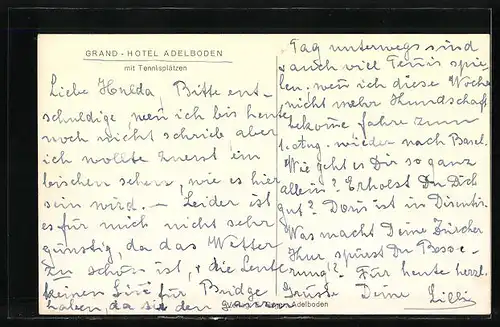 GRAND - HOTEL ADELBODEN
mit Tennisplätzen
Liebe Honlda, Bitte ent-
schuldige, wenn ich bis heute
noch nicht schrieb aber
ich wollte zuerst ein
bischen sehen, wie es hier
sein wird. - Leider ist
es für mich nicht sehr
günstig, da das Wetter
zu schön ist, & die Leute
keinen für Bridge
haben, da sie den ganzen
Tag unterwegs sind
& auch viel Tennis spie-
len, wenn ich diese Woche
nicht mehr Kundschaft
bekome fahre zum
1. Aug. wieder nach Basel.
Wie geht es Dir so ganz
allein? Erholst Du Dich
gut? Doris ist in Disentis.
Was macht Deine Zürcher
Kur, spürst Du Besse-
rung? Für heute herzl.
Grüsse Deine Lilli
Adelboden